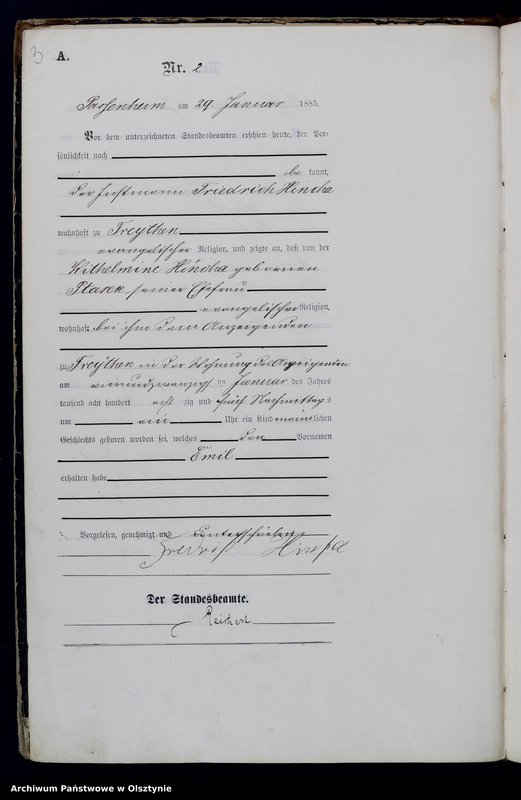 3
A.
Nr. 2
Passenheim am 29. Januar 1885.
Vor dem unterzeichneten Standesbeamten erschien heute, der Per-
sönlichkeit nach
be kannt,
der Instmann Friedrich Hincha
wohnhaft zu Freythen
evangelischer Religion, und zeigte an, daß von der
Wilhelmine Hincha gebornen
Starek seiner Ehefrau
evangelischer Religion,
wohnhaft bei ihm dem Anzeigenden
zu Freythen in der Wohnung des Anzeigenden
am vierundzwanzigsten Januar des Jahres
tausend acht hundert acht zig und fünf Nachmittags
um ein Uhr ein Kind männlichen
Geschlechts geboren worden sei, welches den Vornamen
Emil
erhalten habe
Vorgelesen, genehmigt und unterschrieben
Hincha
Der Standesbeamte.
Reichert
Archiwum Państwowe w Olsztynie